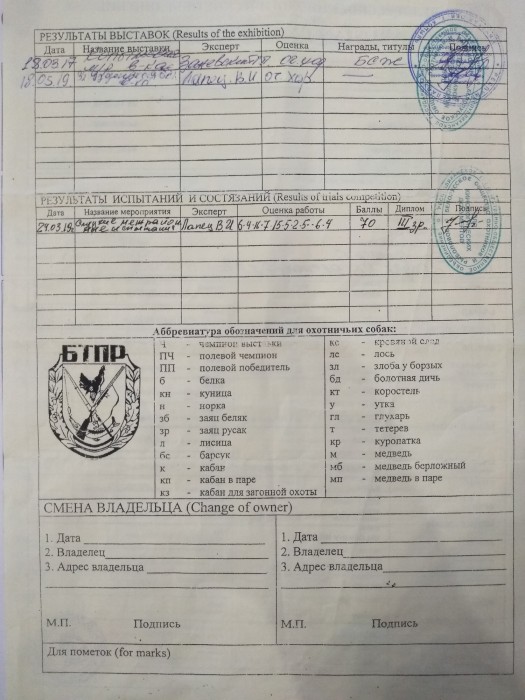 РЕЗУЛЬТАТЫ ВЫСТАВОК (Results of the exhibition)
Дата Название выставки Эксперт Оценка Награды, титулы Подпись
18.03.17
18.05.19 Лапец В.И от. хор
РЕЗУЛЬТАТЫ ИСПЫТАНИЙ И СОСТЯЗАНИЙ (Results of trials competition)
Дата Название мероприятия Эксперт Оценка работы Баллы Диплом Подпись
24.03.19 Лапец В.И 6-9-16-7-15-5-2-5-6-4 70 III зр.
Аббревиатура обозначений для охотничьих собак:
БТПР
ч - чемпион выставки
ПЧ - полевой чемпион
ПП - полевой победитель
б - белка
кн - куница
н - норка
зб - заяц беляк
зр - заяц русак
л - лисица
бс - барсук
к - кабан
кп - кабан в паре
кз - кабан для загонной охоты
кс - кровяной след
лс - лось
зл - злоба у борзых
бд - болотная дичь
кт - коростель
у - утка
гл - глухарь
т - тетерев
кр - куропатка
м - медведь
мб - медведь берложный
мп - медведь в паре
СМЕНА ВЛАДЕЛЬЦА (Change of owner)
1. Дата
2. Владелец
3. Адрес владельца
М.П. Подпись
1. Дата
2. Владелец
3. Адрес владельца
М.П. Подпись
Для пометок (for marks)